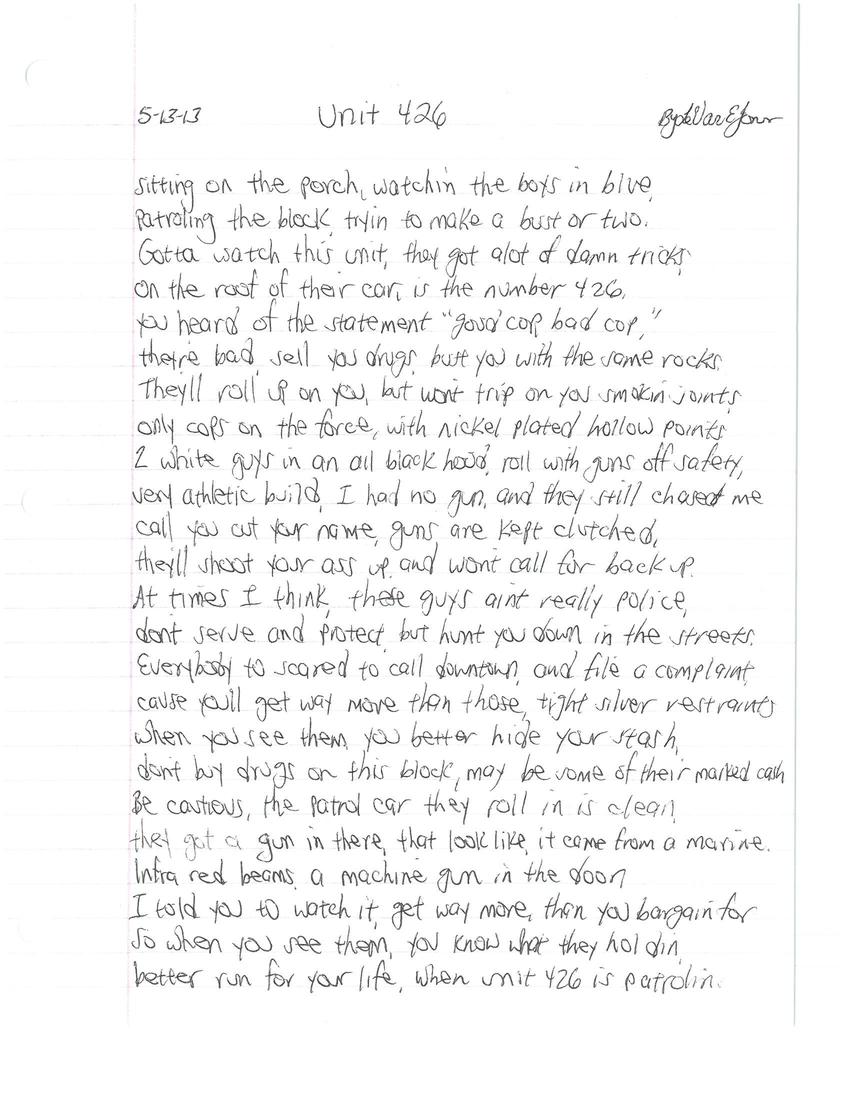 5-13-13 Unit 426
sitting on the porch, watchin the boys in blue,
Patroling the block, tryin to make a bust or two.
Gotta watch this unit, they got alot of damn tricks,
on the roof of their car, is the number 426,
you heard of the statement "good cop, bad cop,"
their'e bad, sell you drugs, bust you with the same rocks.
They'll roll up on you, but won't trip on you smokin joints,
only cops on the force, with nickel plated hollow points
2 white guys in an all black hood, roll with guns off safety,
very athletic build, I had no gun, and they still chased me
call you out your name, guns are kept clutched,
they'll shoot your ass up, and won't call for back up.
At times I think, these guys aint really police,
dont serve and protect, but hunt you down in the streets.
Everybody to scared to call downtown, and file a complaint,
cause you'll get way more than those, tight silver restraints
when you see them, you better hide your stash,
don't buy drugs on this block, may be some of their marked cash
Be cautious, the patrol car they roll in is clean,
they got a gun in there, that look like, it came from a marine.
Infra red beams, a machine gun in the door,
I told you to watch it, get way more, than you bargain for
So when you see them, you know what they holdin,
better run for your life, when unit 426 is patrolin.